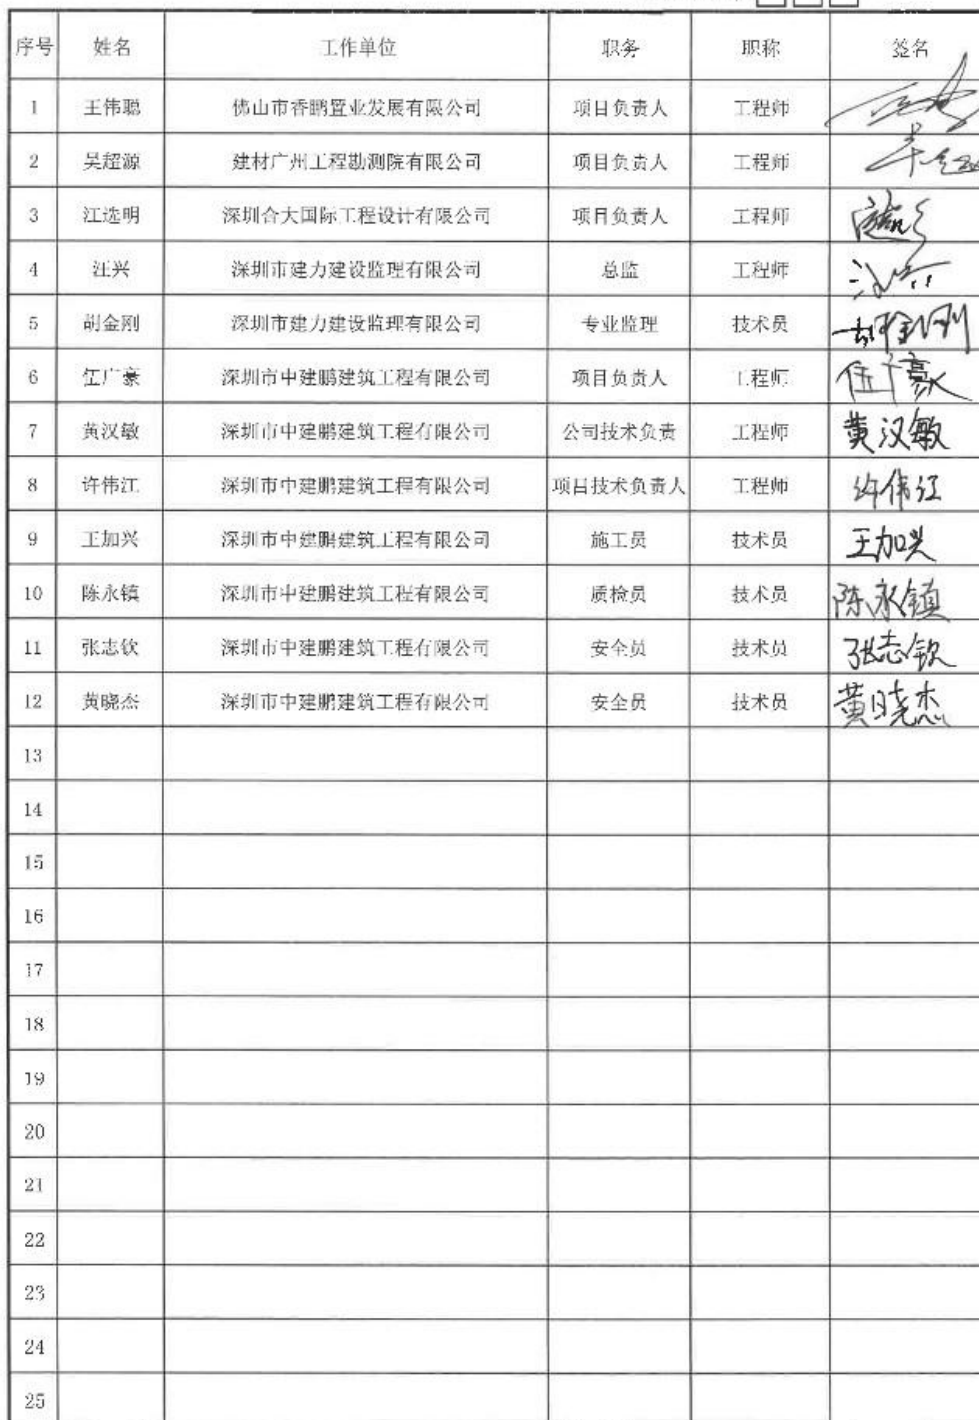 序号 姓名 工作单位 职务 职称 签名
1 王伟聪 佛山市香鹏置业发展有限公司 项目负责人 工程师
2 吴超源 建材广州工程勘测院有限公司 项目负责人 工程师
3 江选明 深圳合大国际工程设计有限公司 项目负责人 工程师
4 汪兴 深圳市建力建设监理有限公司 总监 工程师 汪兴
5 胡金刚 深圳市建力建设监理有限公司 专业监理 技术员 胡金刚
6 伍广豪 深圳市中建鹏建筑工程有限公司 项目负责人 工程师 伍广豪
7 黄汉敏 深圳市中建鹏建筑工程有限公司 公司技术负责 工程师 黄汉敏
8 许伟江 深圳市中建鹏建筑工程有限公司 项目技术负责人 工程师 许伟江
9 王加兴 深圳市中建鹏建筑工程有限公司 施工员 技术员 王加兴
10 陈永镇 深圳市中建鹏建筑工程有限公司 质检员 技术员 陈永镇
11 张志钦 深圳市中建鹏建筑工程有限公司 安全员 技术员 张志钦
12 黄晓杰 深圳市中建鹏建筑工程有限公司 安全员 技术员 黄晓杰
13
14
15
16
17
18
19
20
21
22
23
24
25